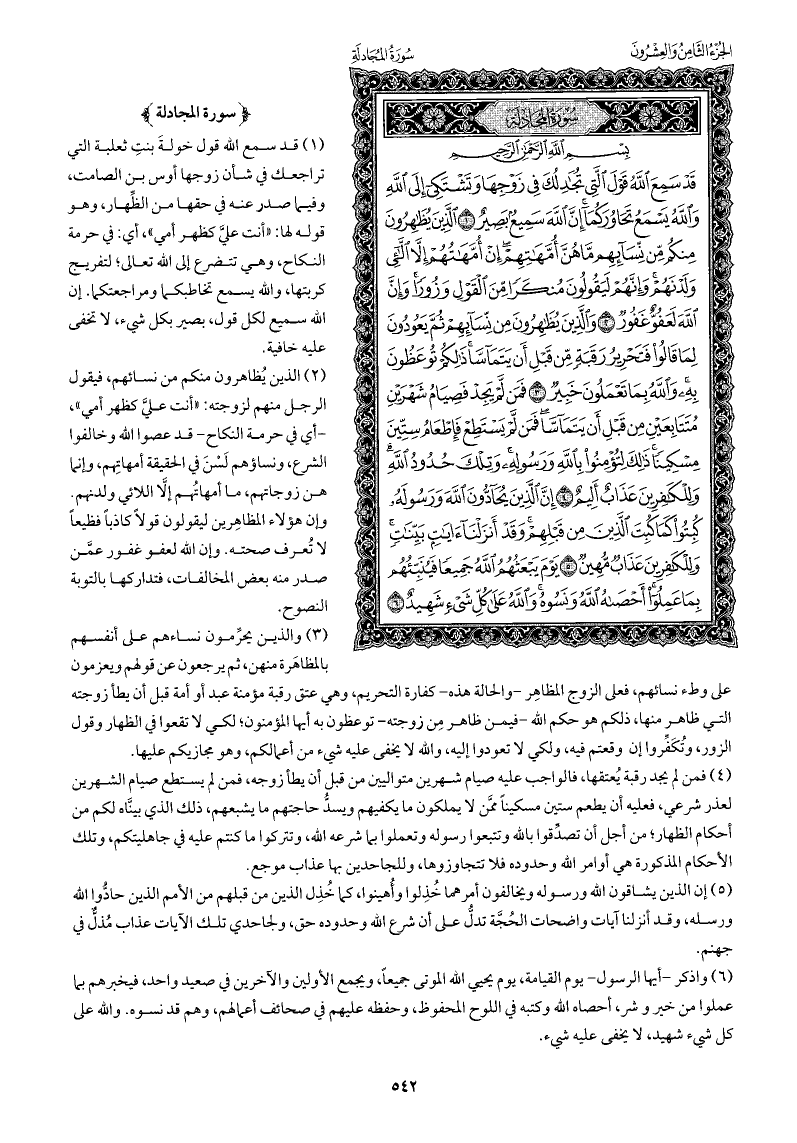 الجُزْءُ الثَّامِنُ وَالعِشْرُونَ
سُورَةُ المُجَادلَةِ
سُورَةُ المُجَادلَةِ
بِسْمِ اللَّهِ الرَّحْمَٰنِ الرَّحِيمِ
قَدْ سَمِعَ ٱللَّهُ قَوْلَ ٱلَّتِي تُجَٰدِلُكَ فِي زَوْجِهَا وَتَشْتَكِىٓ إِلَى ٱللَّهِ
وَٱللَّهُ يَسْمَعُ تَحَاوُرَكُمَآ إِنَّ ٱللَّهَ سَمِيعٌۢ بَصِيرٌ ١ ٱلَّذِينَ يُظَٰهِرُونَ
مِنكُم مِّن نِّسَآئِهِم مَّا هُنَّ أُمَّهَٰتِهِمْ إِنْ أُمَّهَٰتُهُمْ إِلَّا ٱلَّٰٓـِٔي
وَلَدْنَهُمْ وَإِنَّهُمْ لَيَقُولُونَ مُنكَرًا مِّنَ ٱلْقَوْلِ وَزُورًا وَإِنَّ
ٱللَّهَ لَعَفُوٌّ غَفُورٌ ٢ وَٱلَّذِينَ يُظَٰهِرُونَ مِن نِّسَآئِهِمْ ثُمَّ يَعُودُونَ
لِمَا قَالُوا۟ فَتَحْرِيرُ رَقَبَةٍ مِّن قَبْلِ أَن يَتَمَآسَّا ذَٰلِكُمْ تُوعَظُونَ
بِهِۦ وَٱللَّهُ بِمَا تَعْمَلُونَ خَبِيرٌ ٣ فَمَن لَّمْ يَجِدْ فَصِيَامُ شَهْرَيْنِ
مُتَتَابِعَيْنِ مِن قَبْلِ أَن يَتَمَآسَّا فَمَن لَّمْ يَسْتَطِعْ فَإِطْعَامُ سِتِّينَ
مِسْكِينًا ذَٰلِكَ لِتُؤْمِنُوا۟ بِٱللَّهِ وَرَسُولِهِۦ وَتِلْكَ حُدُودُ ٱللَّهِ
وَلِلْكَٰفِرِينَ عَذَابٌ أَلِيمٌ ٤ إِنَّ ٱلَّذِينَ يُحَآدُّونَ ٱللَّهَ وَرَسُولَهُۥ
كُبِتُوا۟ كَمَا كُبِتَ ٱلَّذِينَ مِن قَبْلِهِمْ وَقَدْ أَنزَلْنَآ ءَايَٰتٍۭ بَيِّنَٰتٍ
وَلِلْكَٰفِرِينَ عَذَابٌ مُّهِينٌ ٥ يَوْمَ يَبْعَثُهُمُ ٱللَّهُ جَمِيعًا فَيُنَبِّئُهُم
بِمَا عَمِلُوٓا۟ أَحْصَىٰهُ ٱللَّهُ وَنَسُوهُ وَٱللَّهُ عَلَىٰ كُلِّ شَىْءٍ شَهِيدٌ ٦
﴿سورة المجادلة﴾
(١) قد سمع الله قول خولةَ بنتِ ثعلبية التي
تراجعك في شأن زوجها أوس بن الصامت،
وفيما صدر عنه في حقها من الظِّهار، وهو
قوله لها: «أنت عليَّ كظهر أمي»، أي: في حرمة
النكاح، وهي تتضرع إلى الله تعالى؛ لتفريج
كربتها، والله يسمع تخاطبكما ومراجعتكما. إن
الله سميع لكل قول، بصير بكل شيء، لا تخفى
عليه خافية.
(٢) الذين يُظاهرون منكم من نسائهم، فيقول
الرجل منهم لزوجته: «أنت عليَّ كظهر أمي»،
-أي في حرمة النكاح- قد عصوا الله وخالفوا
الشرع، ونساؤهم لَسْنَ في الحقيقة أمهاتِهم، وإنما
هن زوجاتهم، ما أمهاتُهم إلَّا اللائي ولدنهم.
وإن هؤلاء المظاهِرين ليقولون قولاً كاذباً فظيعاً
لا تُعرف صحته. وإن الله لعفو غفور عمَّن
صدر منه بعض المخالفات، فتداركها بالتوبة
النصوح.
(٣) والذين يحرِّمون نساءهم على أنفسهم
بالمظاهَرة منهن، ثم يرجعون عن قولهم ويعزمون
على وطء نسائهم، فعلى الزوج المظاهِر -والحالة هذه- كفارة التحريم، وهي عتق رقبة مؤمنة عبد أو أمة قبل أن يطأ زوجته
التي ظاهر منها، ذلكم هو حكم الله -فيمن ظاهر مِن زوجته- توعظون به أيها المؤمنون؛ لكي لا تقعوا في الظهار وقول
الزور، وتُكَفِّروا إن وقعتم فيه، ولكي لا تعودوا إليه، والله لا يخفى عليه شيء من أعمالكم، وهو مجازيكم عليها.
(٤) فمن لم يجد رقبة يُعتقها، فالواجب عليه صيام شهرين متواليين من قبل أن يطأ زوجه، فمن لم يستطع صيام الشهرين
لعذر شرعي، فعليه أن يطعم ستين مسكيناً ممَّن لا يملكون ما يكفيهم ويسدُّ حاجتهم ما يشبعهم، ذلك الذي بينَّاه لكم من
أحكام الظهار؛ من أجل أن تصدِّقوا بالله وتتبعوا رسوله وتعملوا بما شرعه الله، وتتركوا ما كنتم عليه في جاهليتكم، وتلك
الأحكام المذكورة هي أوامر الله وحدوده فلا تتجاوزوها، وللجاحدين بها عذاب موجع.
(٥) إن الذين يشاقون الله ورسوله ويخالفون أمرهما خُذِلوا وأُهينوا، كما خُذِل الذين من قبلهم من الأمم الذين حادُّوا الله
ورسله، وقد أنزلنا آيات واضحات الحُجَّة تدلُّ على أن شرع الله وحدوده حق، ولجاحدي تلك الآيات عذاب مُذلٌّ في
جهنم.
(٦) واذكر -أيها الرسول- يوم القيامة، يوم يحيي الله الموتى جميعاً، ويجمع الأولين والآخرين في صعيد واحد، فيخبرهم بما
عملوا من خير و شر، أحصاه الله وكتبه في اللوح المحفوظ، وحفظه عليهم في صحائف أعمالهم، وهم قد نسوه. والله على
كل شيء شهيد، لا يخفى عليه شيء.
٥٤٢